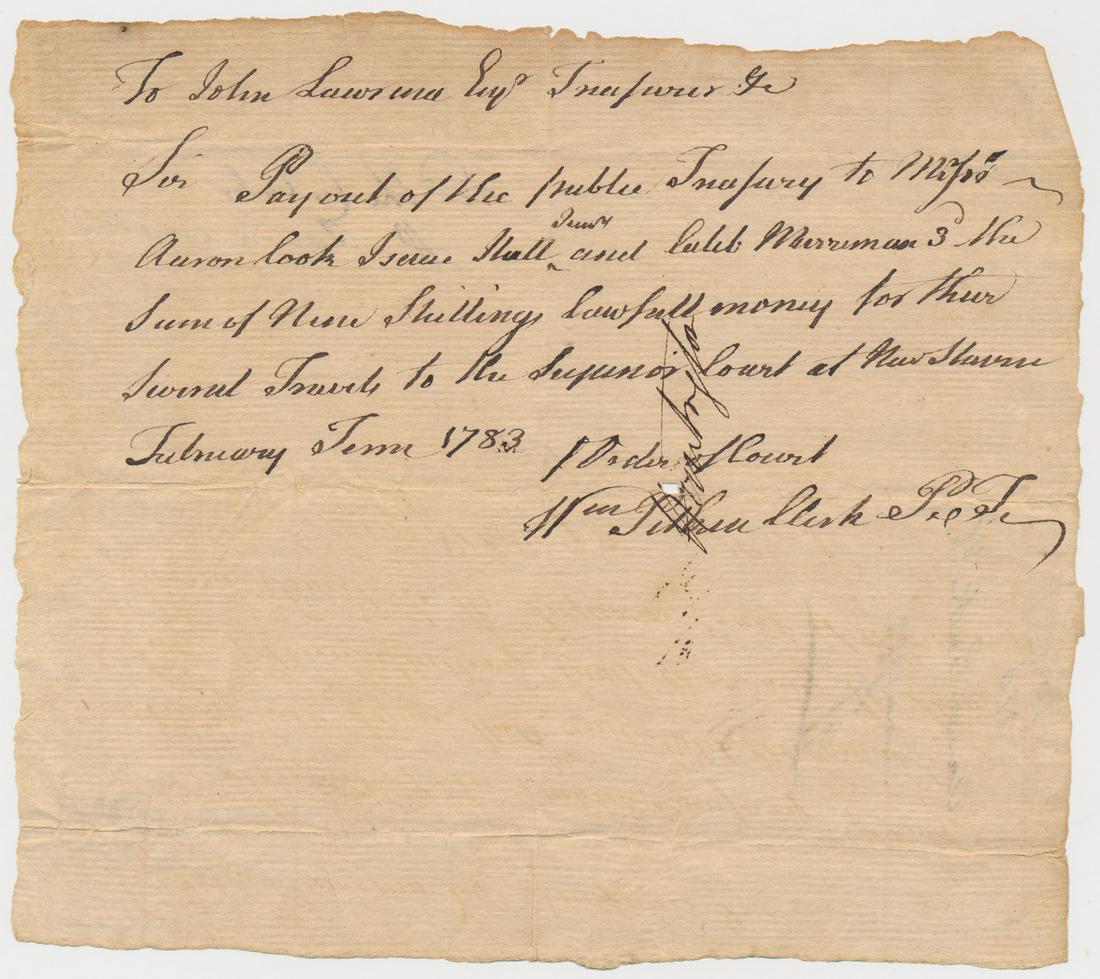 To John Lawrence Esqr Treasurer &c
Sir Pay out of the public Treasury to Messrs
Aaron Cook Isaac Hall Junr and Caleb Merreman 3d the
Sum of Nine Shillings Lawfull money for their
Several Travels to the Superior Court at New Haven
February Term 1783
Order of Court
Wm Clerk